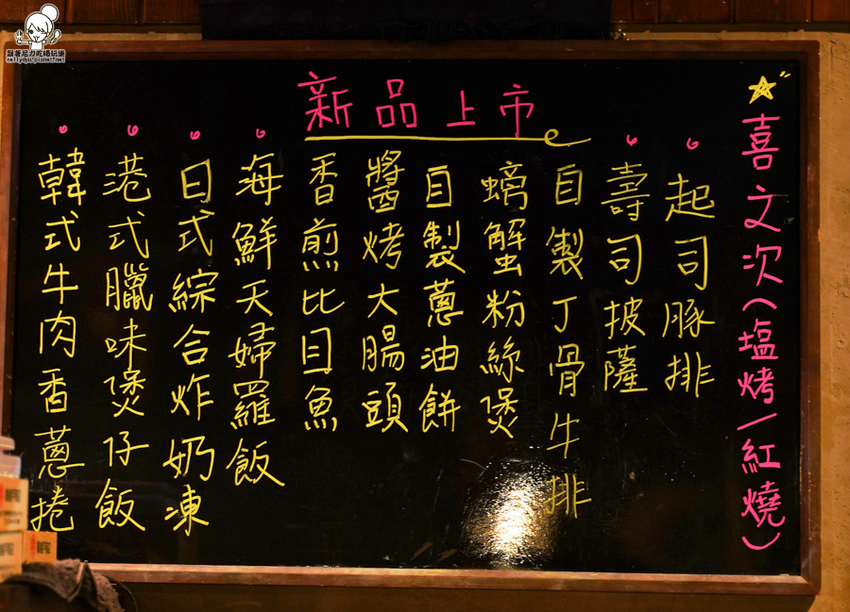 新品上市
喜文次(塩烤/紅燒)
起司豚排
壽司披薩
自製丁骨牛排
螃蟹粉絲煲
自製蔥油餅
醬烤大腸頭
香煎比目魚
海鮮天婦羅飯
日式綜合炸奶凍
港式臘味煲仔飯
韓式牛肉香蔥捲